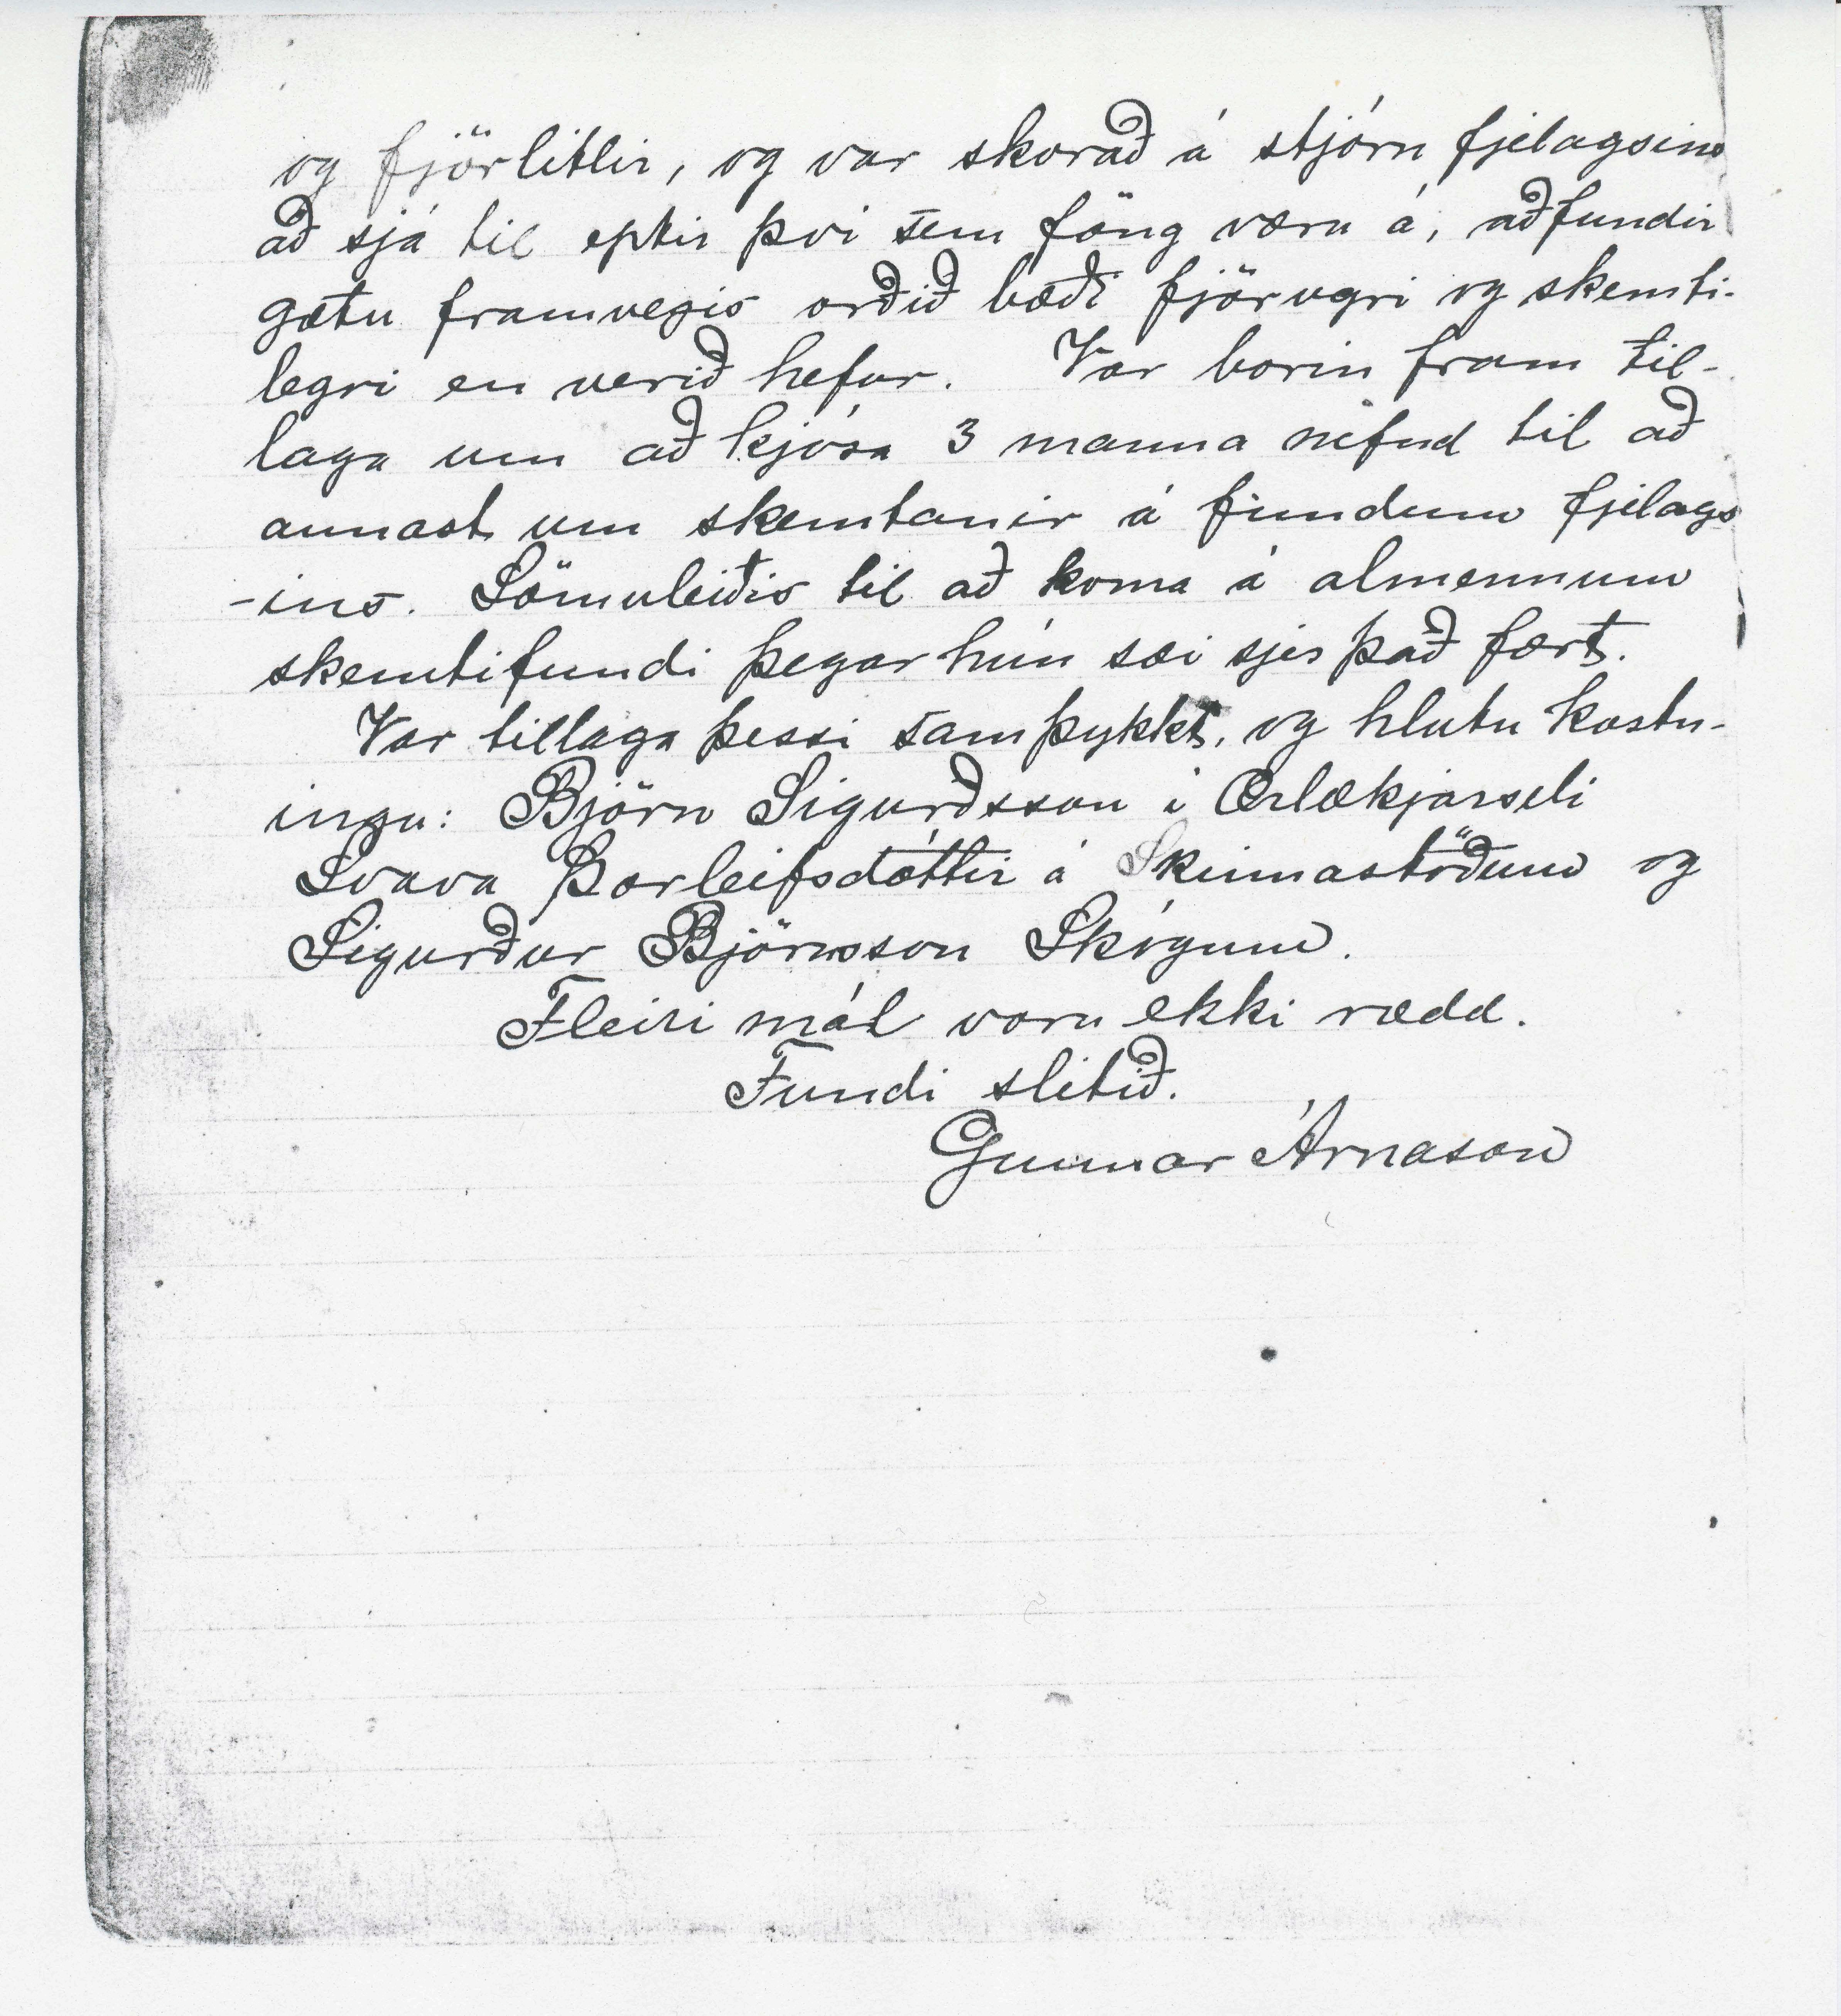 og fjörlitlir, og var skorað á stjórn fjelagsins
að sjá til eptir því sem föng væru á, að fundir
gætu framvegis orðið bæði fjörugri og skemti-
legri en verið hefur. Var borin fram til-
laga um að kjósa 3 manna nefnd til að
annast um skemtanir á fundum fjelags
-ins. Sömuleiðis til að koma á almennum
skemtifundi þegar hún sæi sjer það fært.
Var tillaga þessi samþykkt, og hlutu kostn-
ingu: Björn Sigurðsson í Ærlækjarseli
Svava Þorleifsdóttir á Skinnastöðum og
Sigurður Björnsson Skógum.
Fleiri mál voru ekki rædd.
Fundi slitið.
Gunnar Árnason